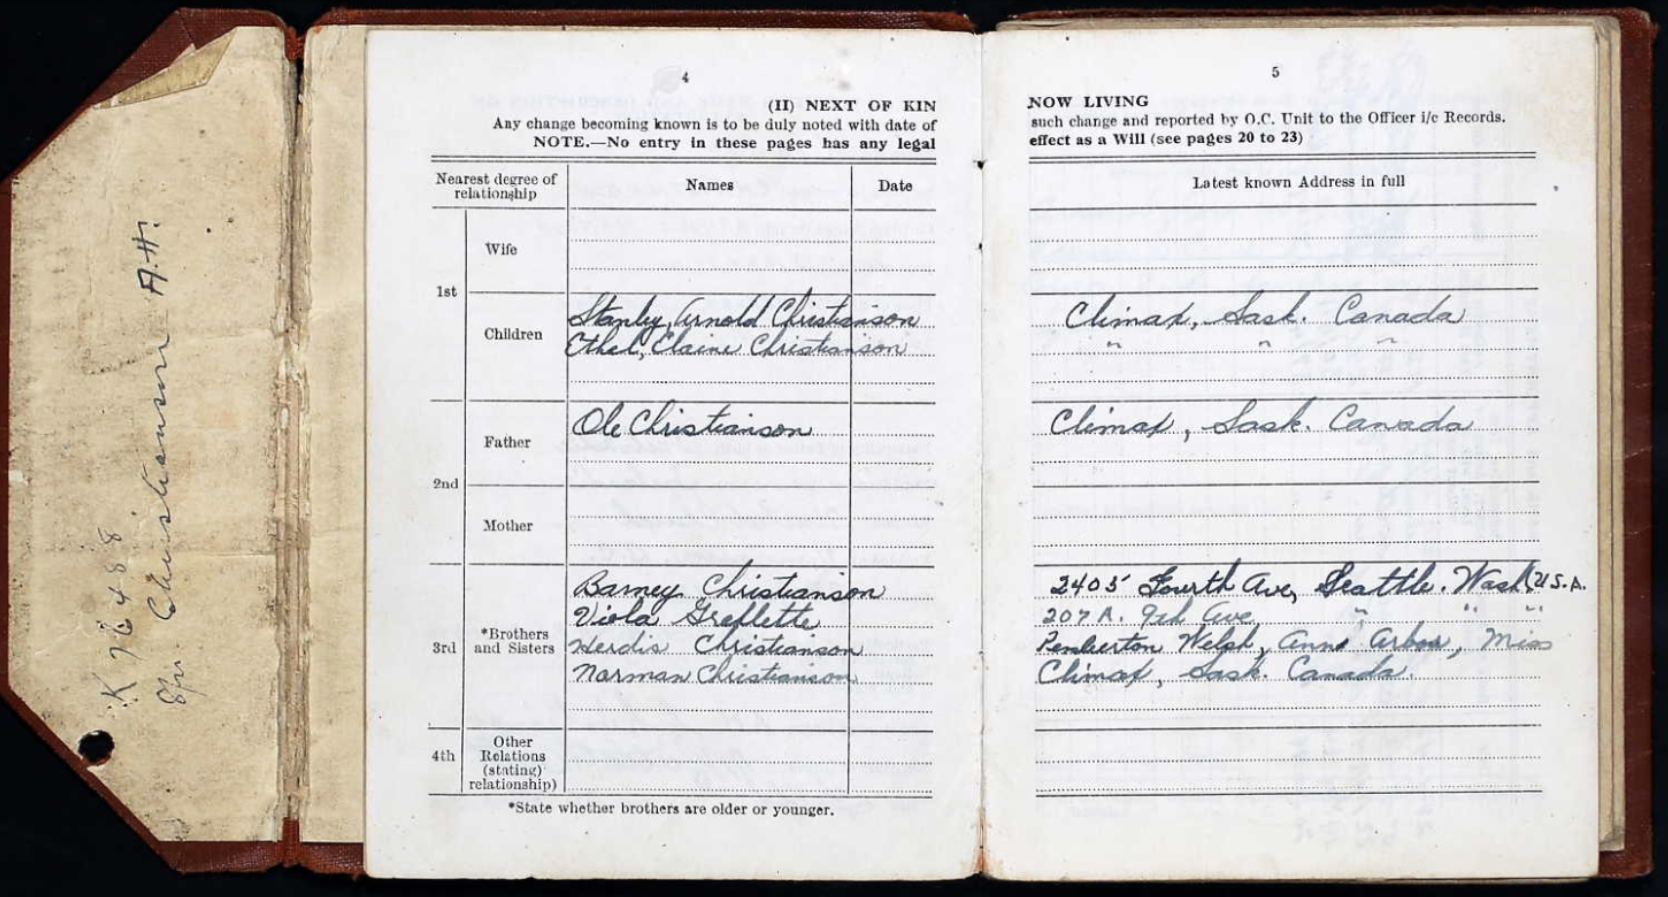 K 76488
Spr. Christianson A.H.
4
(II) NEXT OF KIN
Any change becoming known is to be duly noted with date of
NOTE.—No entry in these pages has any legal
Nearest degree of relationship
Names
Date
1st
Wife
Children
Stanley, Arnold Christianson
Ethel, Elaine Christianson
2nd
Father
Ole Christianson
Mother
3rd
*Brothers and Sisters
Barney Christianson
Viola
Herdis Christianson
Norman Christianson
4th
Other
Relations
(stating)
relationship)
*State whether brothers are older or younger.
5
NOW LIVING
such change and reported by O.C. Unit to the Officer i/c Records.
effect as a Will (see pages 20 to 23)
Latest known Address in full
Climax, Sask. Canada
" " "
Climax, Sask. Canada
2405 Fourth Ave, Seattle. Wash. U.S.A.
207A. 9th Ave, " " "
Pemberton Welsh, Ann Arbor, Miss
Climax, Sask. Canada.